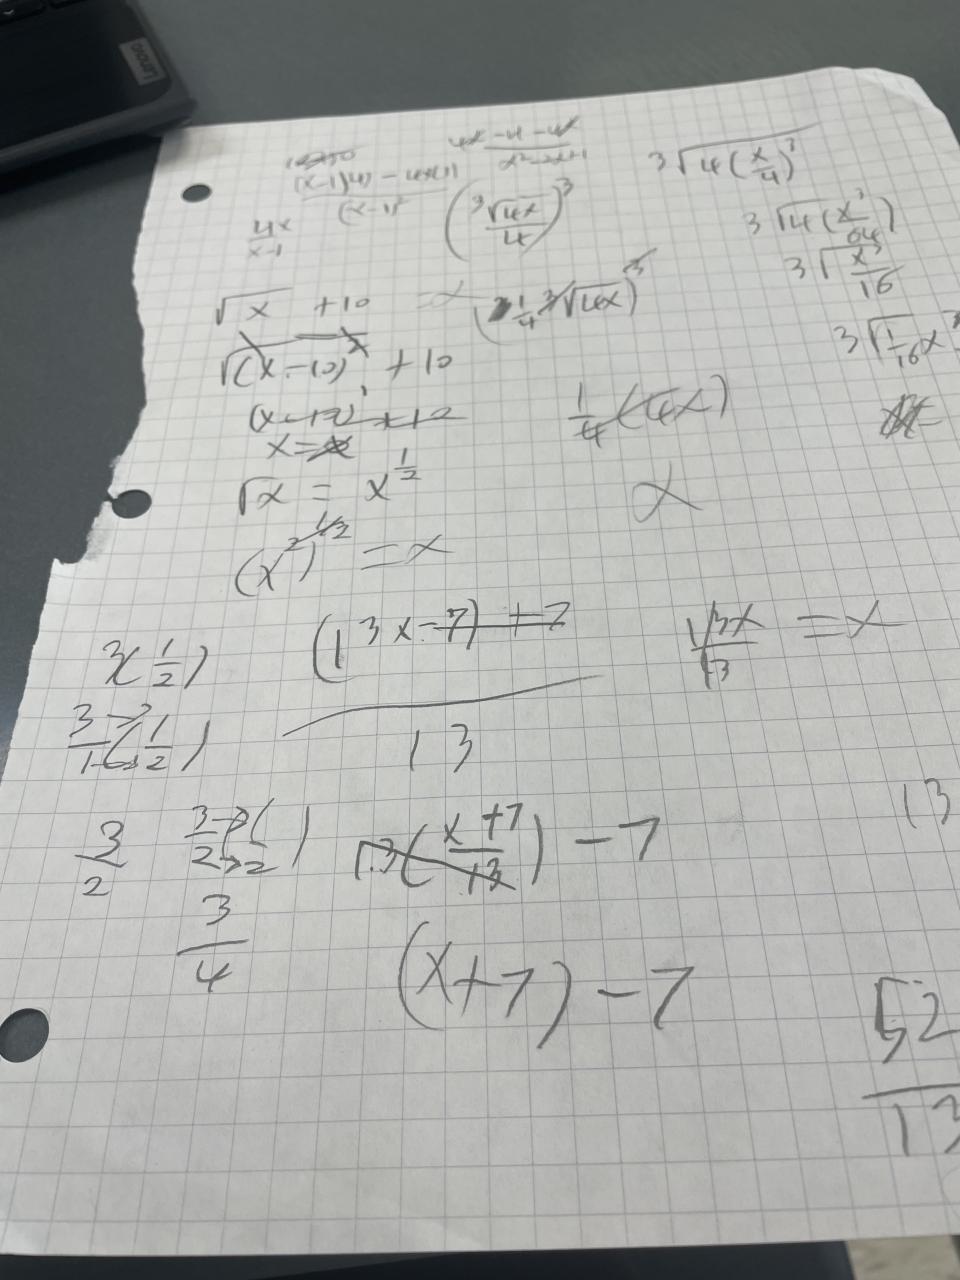 lenovo
4x - 4 - 4x
x² - 2x + 1
(x-1)(4) - 4x(1)
(x-1)²
4x
x-1
(³√4x / 4)³
³√4(x/4)³
³√4(x³/64)
³√x³/16
³√1/16 x³
√x + 10 = x
(1/4 ³√4x)³
√(x-10)² + 10
1/4 (4x)
x =
√x = x^1/2
x
(x²)^1/2 = x
3(1/2)
(13x-7)+7
13
13x/13 = x
3/1 (1/2)
13
3/2
3/2 ( /2)
13(x+7/13) - 7
3/4
(x+7) - 7
52
13